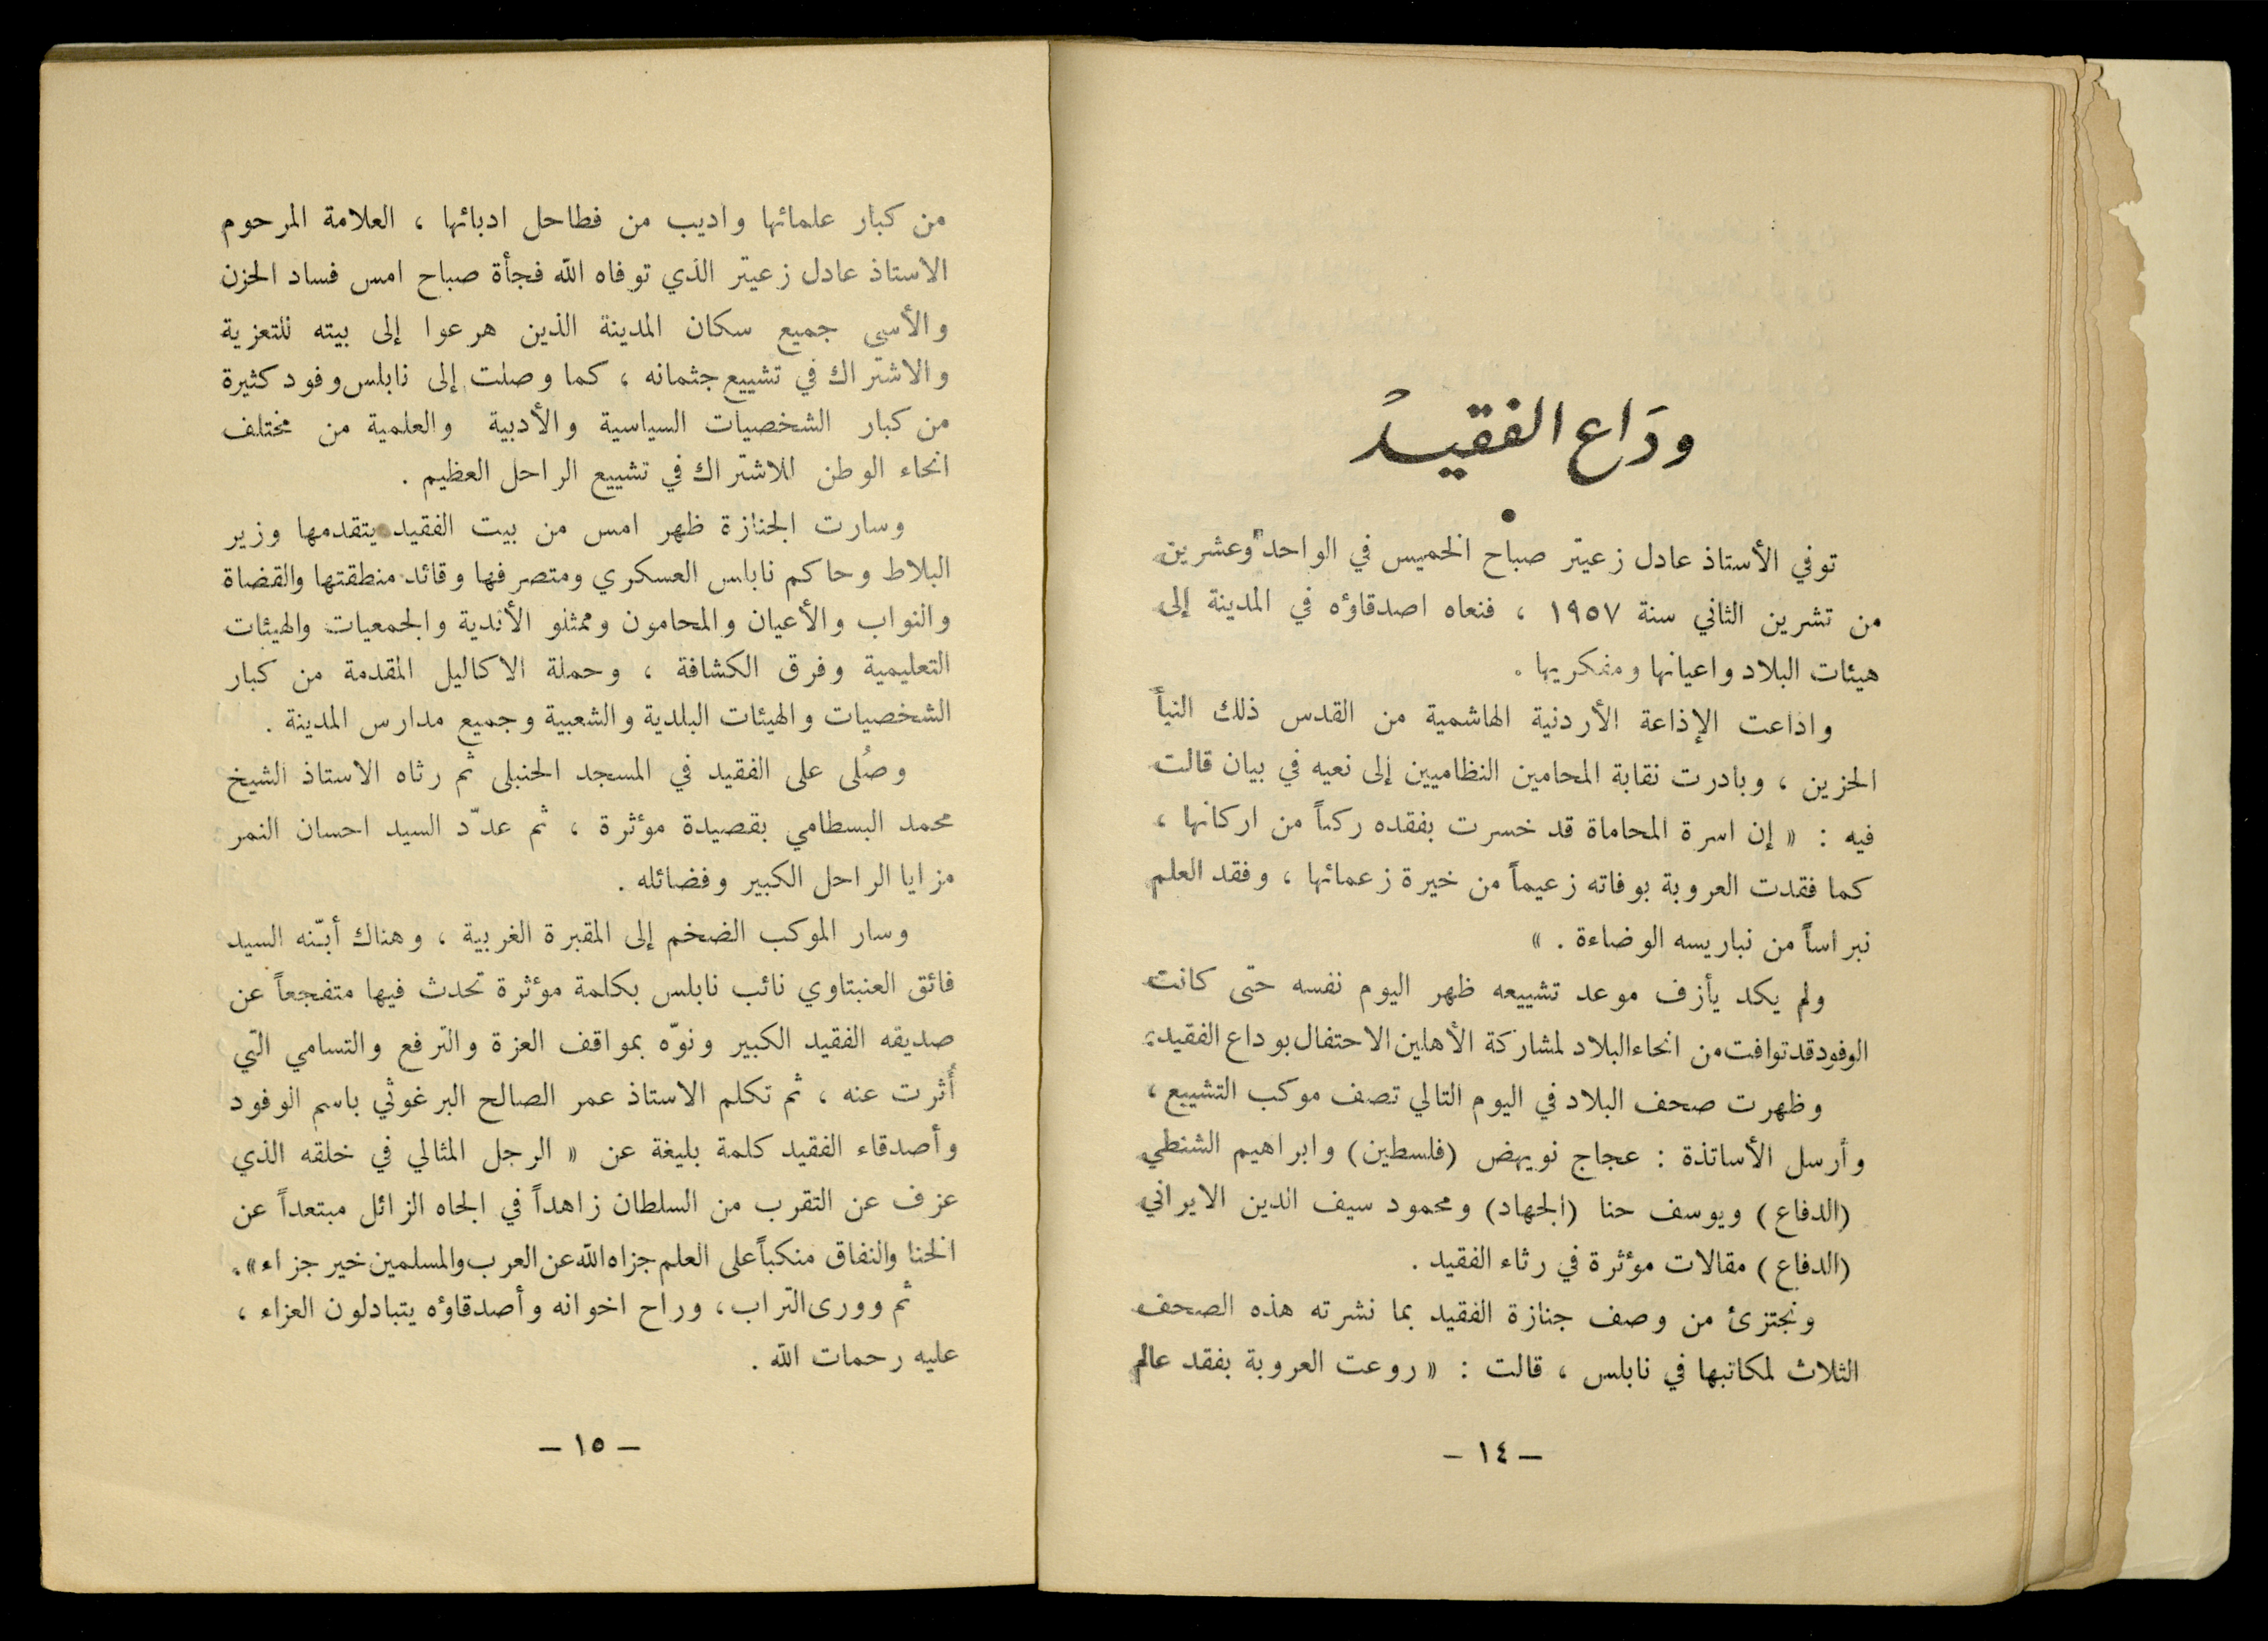 ودَاع الفقيدْ
توفي الأستاذ عادل زعيتر صباح الخميس في الواحد وعشرين
من تشرين الثاني سنة ١٩٥٧ ، فنعاه اصدقاؤه في المدينة إلى
هيئات البلاد واعيانها ومفكريها .
واذاعت الإذاعة الأردنية الهاشمية من القدس ذلك النبأ
الحزين ، وبادرت نقابة المحامين النظاميين إلى نعيه في بيان قالت
فيه : « إن اسرة المحاماة قد خسرت بفقده ركناً من اركانها ،
كما فقدت العروبة بوفاته زعيماً من خيرة زعمائها ، وفقد العلم
نبراساً من نباريسه الوضاءة . »
ولم يكد يأزف موعد تشييعه ظهر اليوم نفسه حتى كانت
الوفود قد توافت من انحاء البلاد لمشاركة الأهلين الاحتفال بوداع الفقيد .
وظهرت صحف البلاد في اليوم التالي تصف موكب التشييع ،
وأرسل الأساتذة : عجاج نويهض (فلسطين) وابراهيم الشنطي
(الدفاع) ويوسف حنا (الجهاد) ومحمود سيف الدين الايراني
(الدفاع) مقالات مؤثرة في رثاء الفقيد .
ونجتزئ من وصف جنازة الفقيد بما نشرته هذه الصحف
الثلاث لمكاتبها في نابلس ، قالت : « روعت العروبة بفقد عالم
– ١٤ –
من كبار علمائها واديب من فطاحل ادبائها ، العلامة المرحوم
الاستاذ عادل زعيتر الذي توفاه الله فجأة صباح امس فساد الحزن
والأسى جميع سكان المدينة الذين هرعوا إلى بيته للتعزية
والاشتراك في تشييع جثمانه ، كما وصلت إلى نابلس وفود كثيرة
من كبار الشخصيات السياسية والأدبية والعلمية من مختلف
انحاء الوطن للاشتراك في تشييع الراحل العظيم .
وسارت الجنازة ظهر امس من بيت الفقيد يتقدمها وزير
البلاط وحاكم نابلس العسكري ومتصرفها وقائد منطقتها والقضاة
والنواب والأعيان والمحامون وممثلو الأندية والجمعيات والهيئات
التعليمية وفرق الكشافة ، وحملة الاكاليل المقدمة من كبار
الشخصيات والهيئات البلدية والشعبية وجميع مدارس المدينة .
وصُلى على الفقيد في المسجد الحنبلى ثم رثاه الاستاذ الشيخ
محمد البسطامي بقصيدة مؤثرة ، ثم عدّد السيد احسان النمر
مزايا الراحل الكبير وفضائله .
وسار الموكب الضخم إلى المقبرة الغربية ، وهناك أبّنه السيد
فائق العنبتاوي نائب نابلس بكلمة مؤثرة تحدث فيها متفجعاً عن
صديقه الفقيد الكبير ونوّه بمواقف العزة والترفع والتسامي التي
أُثرت عنه ، ثم تكلم الاستاذ عمر الصالح البرغوثي باسم الوفود
وأصدقاء الفقيد كلمة بليغة عن « الرجل المثالي في خلقه الذي
عزف عن التقرب من السلطان زاهداً في الجاه الزائل مبتعداً عن
الخنا والنفاق منكباً على العلم جزاه الله عن العرب والمسلمين خير جزاء » .
ثم وورى التراب ، وراح اخوانه وأصدقاؤه يتبادلون العزاء ،
عليه رحمات الله .
– ١٥ –